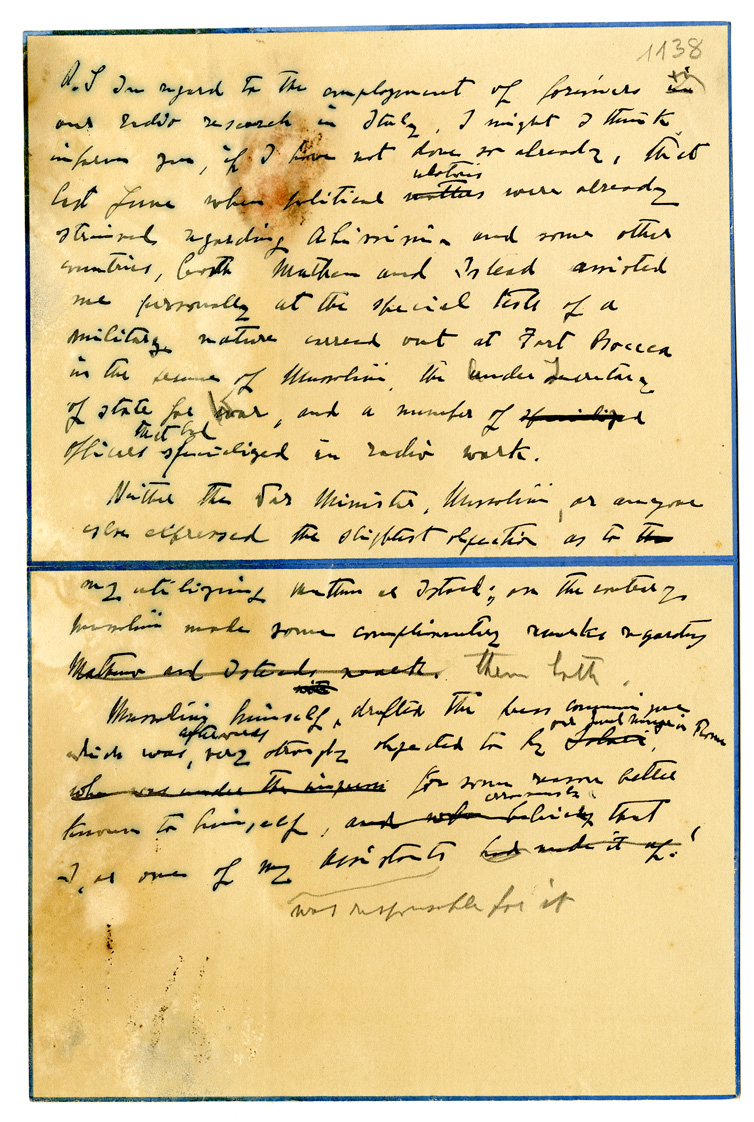 1138
P.S In regard to the employment of foreiners in
our radio research in Italy, I might I think
inform you, if I have not done so already, that
last June when political matters relations were already
strained regarding Abissinia and some other
countries, both Mathieu and Isted assisted
me personally at the special tests of a
military nature carried out at Fort Boccea
in the presence of Mussolini, the Under Secretary
of state for War, and a number of specialized
officers that had specialized in radio work.
Neither the War Minister, Mussolini, or anyone
else expressed the slightest objection as to the
my utilizing Mathieu or Isted; on the contrary
Mussolini made some complimentary remarks regarding
Mathieu and Isteds work. them both.
Mussolini himself, drafted the press communique
which was afterwards very strongly objected to by Solari, our good in Rome
who was under the impress for some reason better
known to himself, and who erroneously believing that
I, or one of my assistants had made it up!
was responsible for it